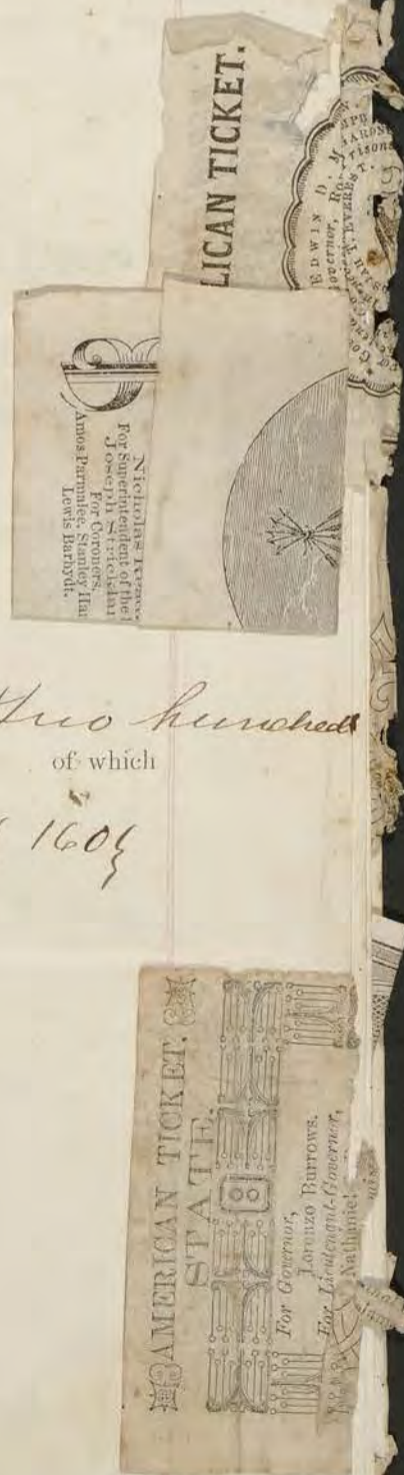 LICAN TICKET.
EDWIN D. M
Governor, Ro
Nicholas
For Superintendent of the
Joseph Stricklan
For Coroners,
Amos Parmalee, Stanley Ha
Lewis Barhydt.
Two hundred
of which
160
AMERICAN TICKET.
STATE.
For Governor,
Lorenzo Burrows.
For Lieutenant-Governor,
Nathaniel